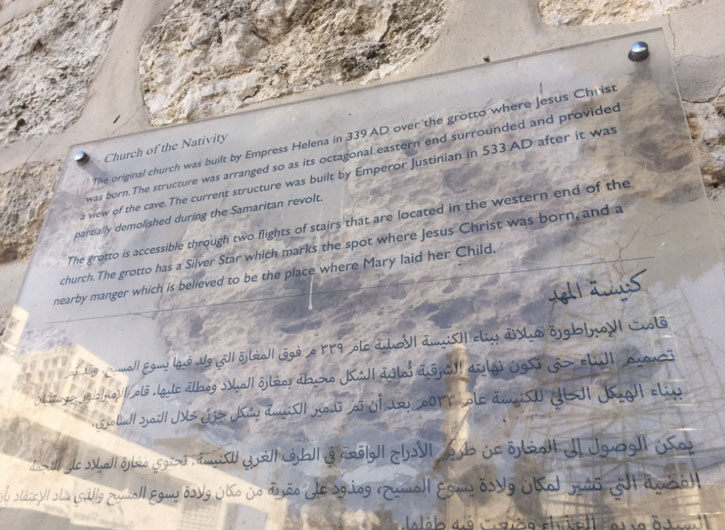 Church of the Nativity
The original church was built by Empress Helena in 339 AD over the grotto where Jesus Christ
was born. The structure was arranged so as its octagonal eastern end surrounded and provided
a view of the cave. The current structure was built by Emperor Justinian in 533 AD after it was
partially demolished during the Samaritan revolt.
The grotto is accessible through two flights of stairs that are located in the western end of the
church. The grotto has a Silver Star which marks the spot where Jesus Christ was born, and a
nearby manger which is believed to be the place where Mary laid her Child.
كنيسة المهد
قامت الإمبراطورة هيلانة ببناء الكنيسة الأصلية عام ٣٣٩ م فوق المغارة التي ولد فيها يسوع المسيح. وقد تم
تصميم البناء حتى تكون نهايته الشرقية ثُمانية الشكل محيطة بمغارة الميلاد ومطلة عليها. قام الإمبراطور جوستنيان
ببناء الهيكل الحالي للكنيسة عام ٥٣٣م بعد أن تم تدمير الكنيسة بشكل جزئي خلال التمرد السامري.
يمكن الوصول إلى المغارة عن طريق الأدراج الواقعة في الطرف الغربي للكنيسة. تحتوي مغارة الميلاد على النجمة
الفضية التي تشير لمكان ولادة يسوع المسيح، ومذود على مقربة من مكان ولادة يسوع المسيح والذي ساد الإعتقاد بأن
السيدة مريم العذراء وضعت فيه طفلها.